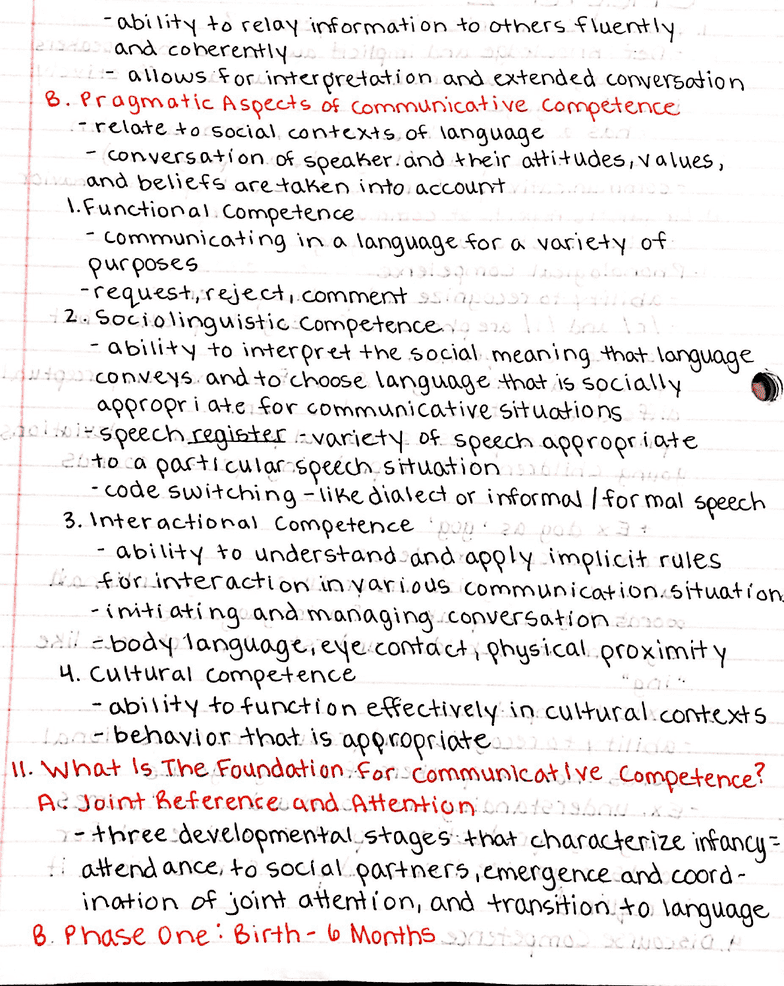 - ability to relay information to others fluently
and coherently
- allows for interpretation and extended conversation
B. Pragmatic Aspects of Communicative Competence
- relate to social contexts of language
- conversation of speaker and their attitudes, values,
and beliefs are taken into account
1. Functional Competence
- communicating in a language for a variety of
purposes
- request, reject, comment
2. Sociolinguistic Competence
- ability to interpret the social meaning that language
conveys and to choose language that is socially
appropriate for communicative situations
- speech register - variety of speech appropriate
to a particular speech situation
- code switching - like dialect or informal / formal speech
3. Interactional Competence
- ability to understand and apply implicit rules
for interaction in various communication situation
- initiating and managing conversation
- body language, eye contact, physical proximity
4. Cultural Competence
- ability to function effectively in cultural contexts
- behavior that is appropriate
II. What Is The Foundation for Communicative Competence?
A. Joint Reference and Attention
- three developmental stages that characterize infancy-
attendance to social partners, emergence and coord-
ination of joint attention, and transition to language
B. Phase One: Birth - 6 Months